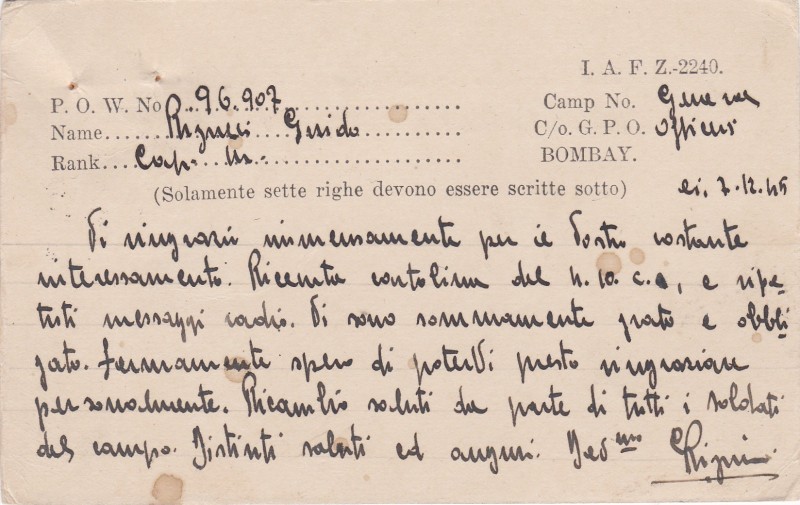 I. A. F. Z.-2240.
P. O. W. No. 96.907 Camp No.
Name Guido C/o. G. P. O.
Rank Cap. BOMBAY.
(Solamente sette righe devono essere scritte sotto) li, 7.12.45
Vi ringrazio immensamente per il Vostro costante
interessamento. Ricevuta cartolina del 4.10. c.a, e ripe-
tuti messaggi radio. Vi sono sommamente grato e obbli-
gato. Fermamente spero di poterVi presto ringraziare
personalmente. Ricambio saluti da parte di tutti i soldati
del campo. Distinti saluti ed auguri. Dev.mo